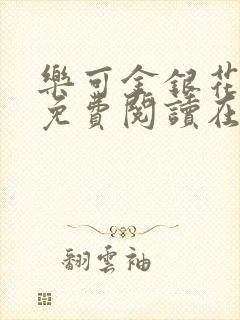 樂可金銀花
免費閱讀在
翻雲袖